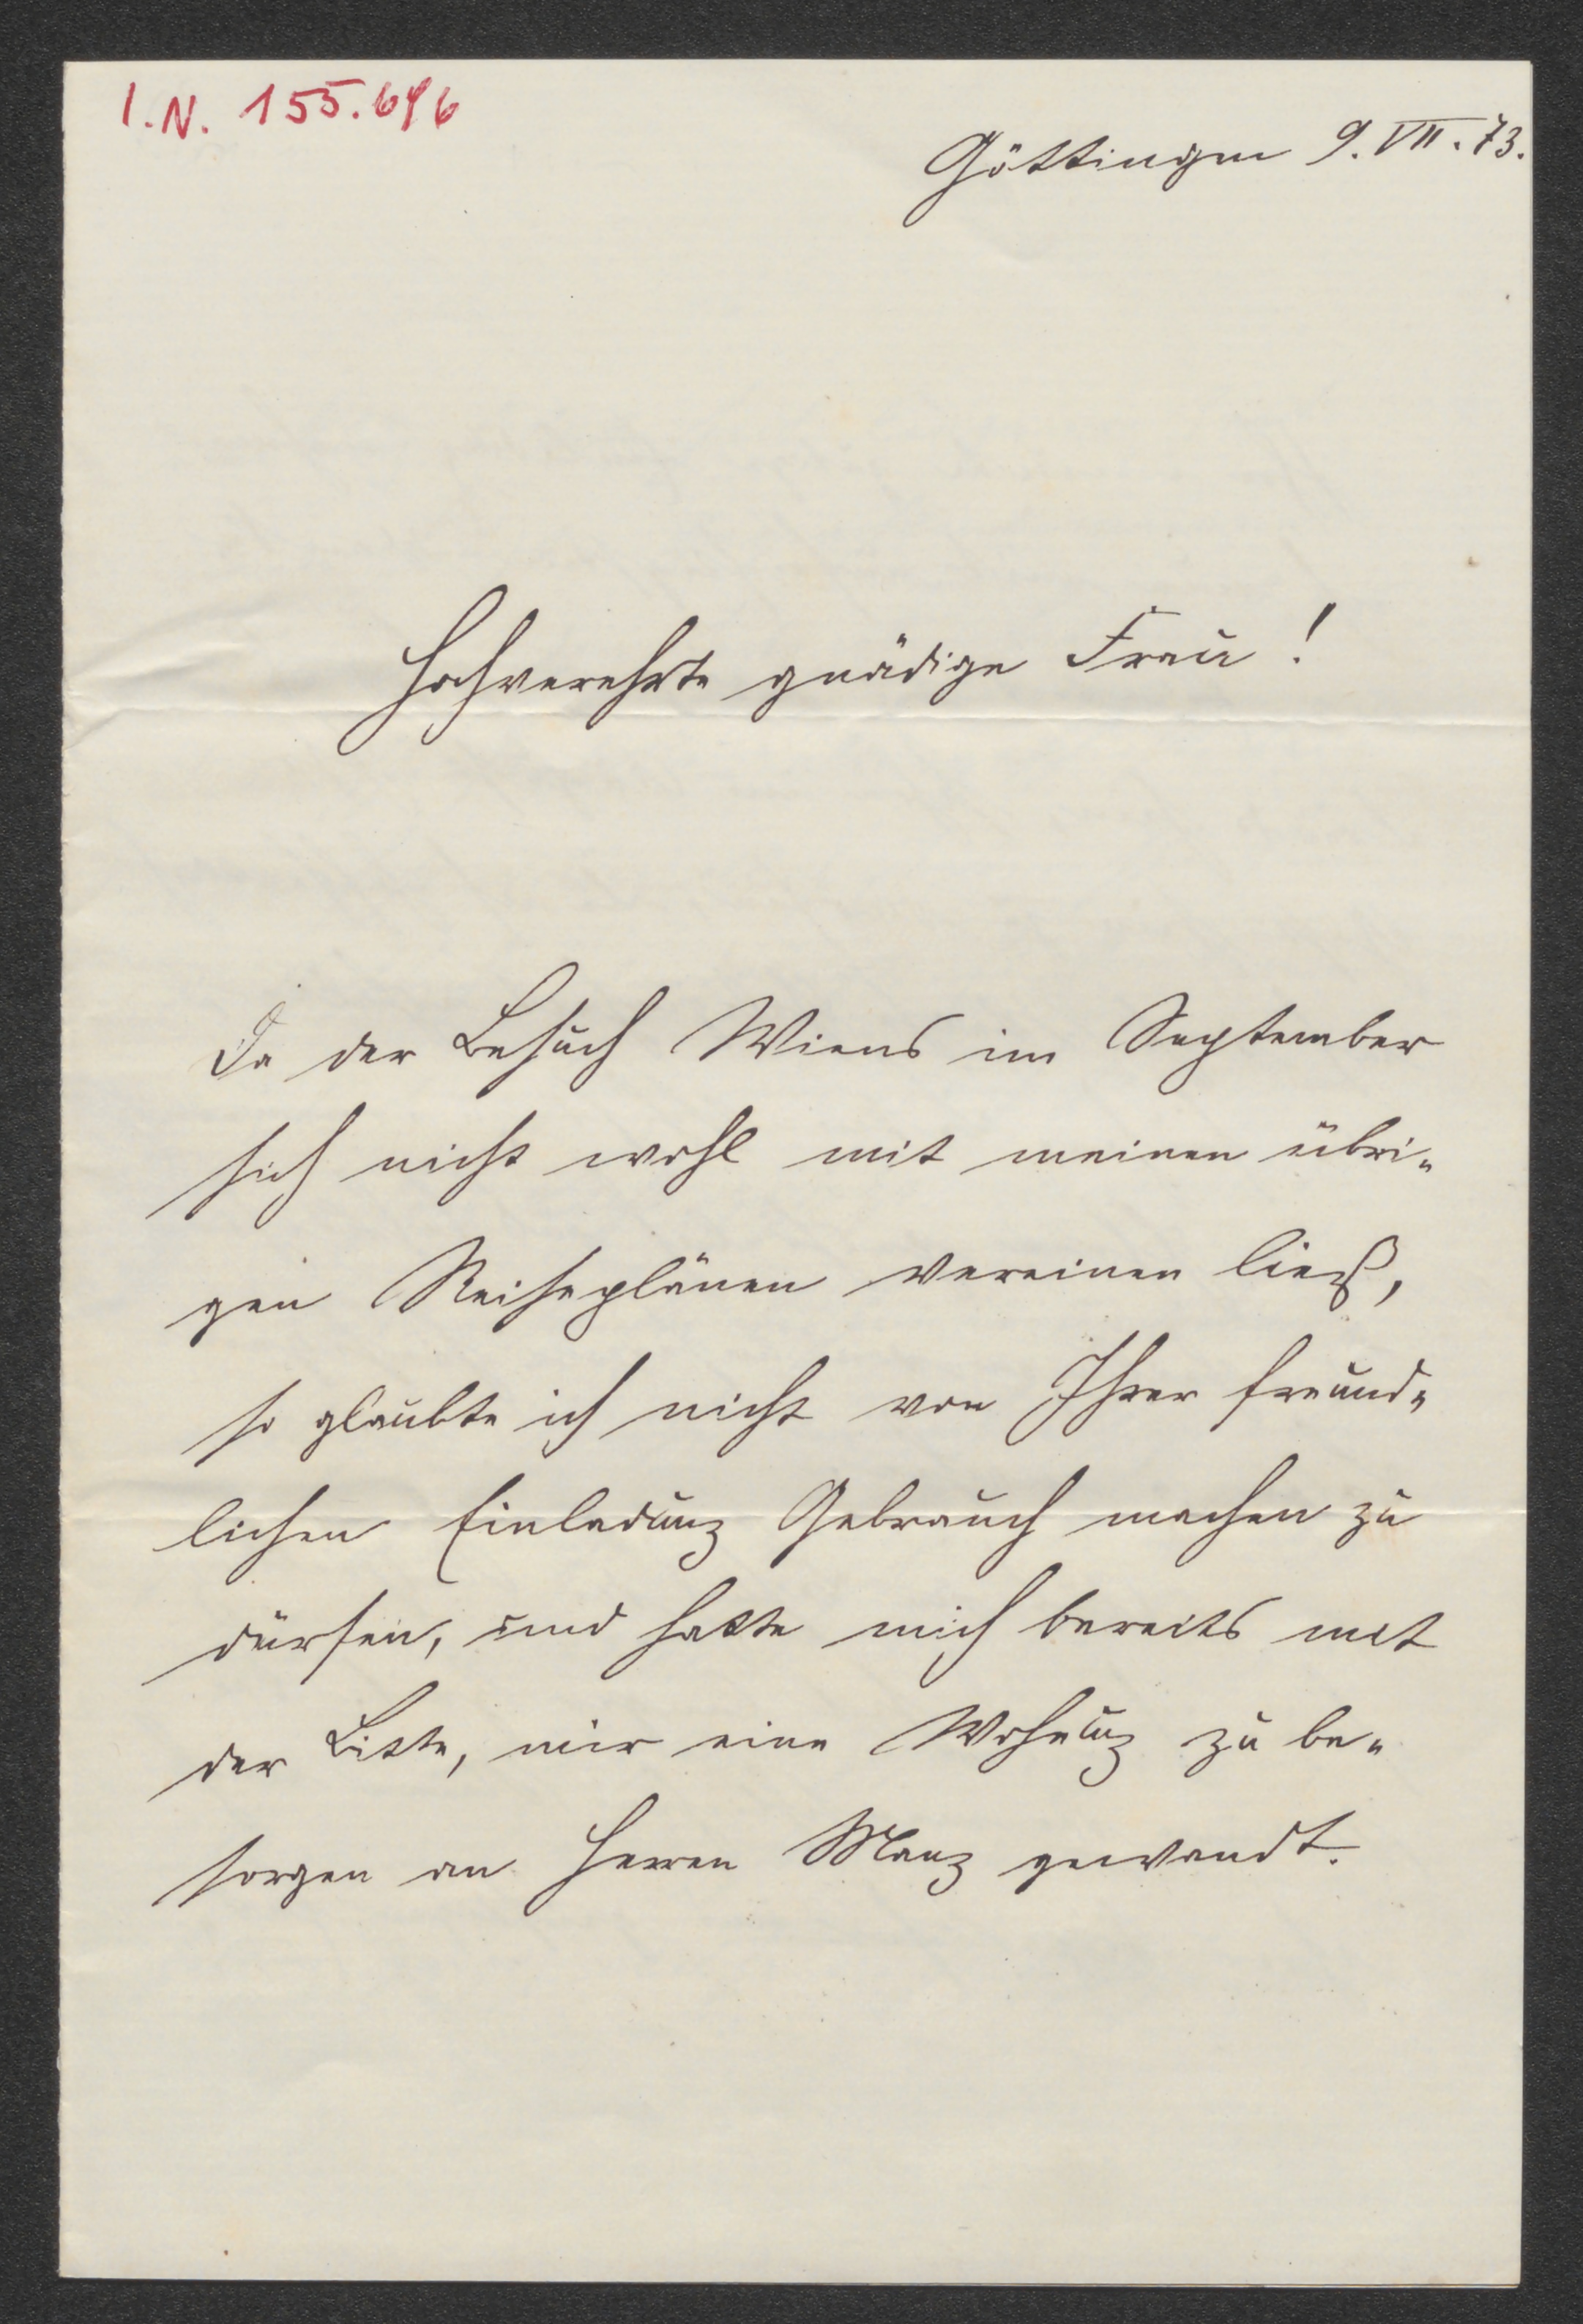 I.N. 155.696
Göttingen 9. VII. 73.
Hochverehrte gnädige Frau!
Da der Besuch Wiens im September
sich nicht wohl mit meinen übri-
gen Reiseplänen vereinen ließ,
so glaubte ich nicht von Ihrer freund-
lichen Einladung Gebrauch machen zu
dürfen, und hatte mich bereits mit
der Bitte, mir eine Wohnung zu be-
sorgen an Herren Manz gewandt.